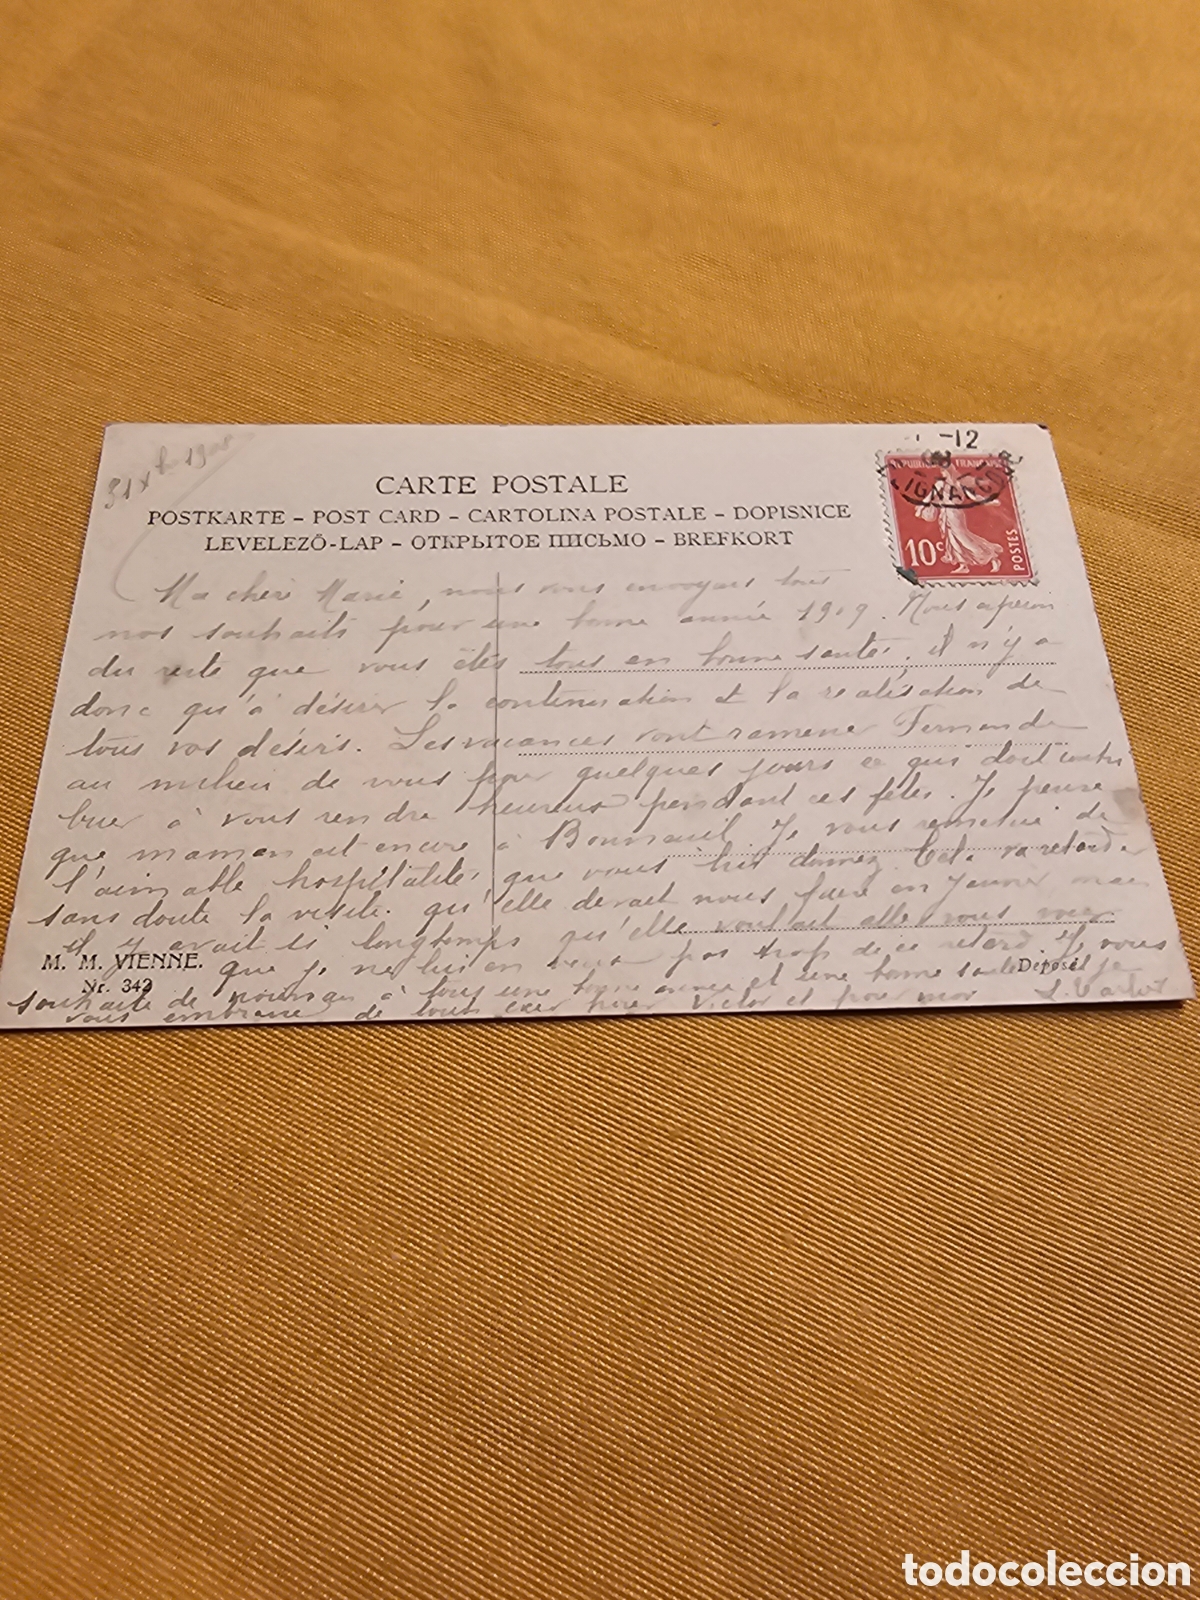 31 Xbre 1908
-12
CARTE POSTALE
POSTKARTE – POST CARD – CARTOLINA POSTALE – DOPISNICE
LEVELEZŐ-LAP – ОТКРЫТОЕ ПИСЬМО – BREFKORT
REPUBLIQUE FRANÇAISE
LIGNANCOUR
10c POSTES
Ma chère Marie, nous vous envoyons tous
nos souhaits pour une bonne année 1909. Nous espérons
du reste que vous êtes tous en bonne santé, il n'y a
donc qu'à désirer la continuation et la réalisation de
tous vos désirs. Les vacances vont ramener Fernande
au milieu de vous pour quelques jours ce qui doit contri
buer à vous rendre heureux pendant ces fêtes. Je pense
que maman est encore à Bonneuil. Je vous remercie de
l'aimable hospitalité que vous lui donnez. Cela va retarder
sans doute la visite qu'elle devait nous faire en Janvier mais
il y avait si longtemps qu'elle voulait aller vous voir
que je ne lui en veux pas trop de ce retard. Je vous
souhaite de nouveau à tous une bonne année et une bonne santé et je
vous embrasse de tout cœur pour Victor et pour moi
M. M. VIENNE.
Nr. 342
Déposé
todocoleccion